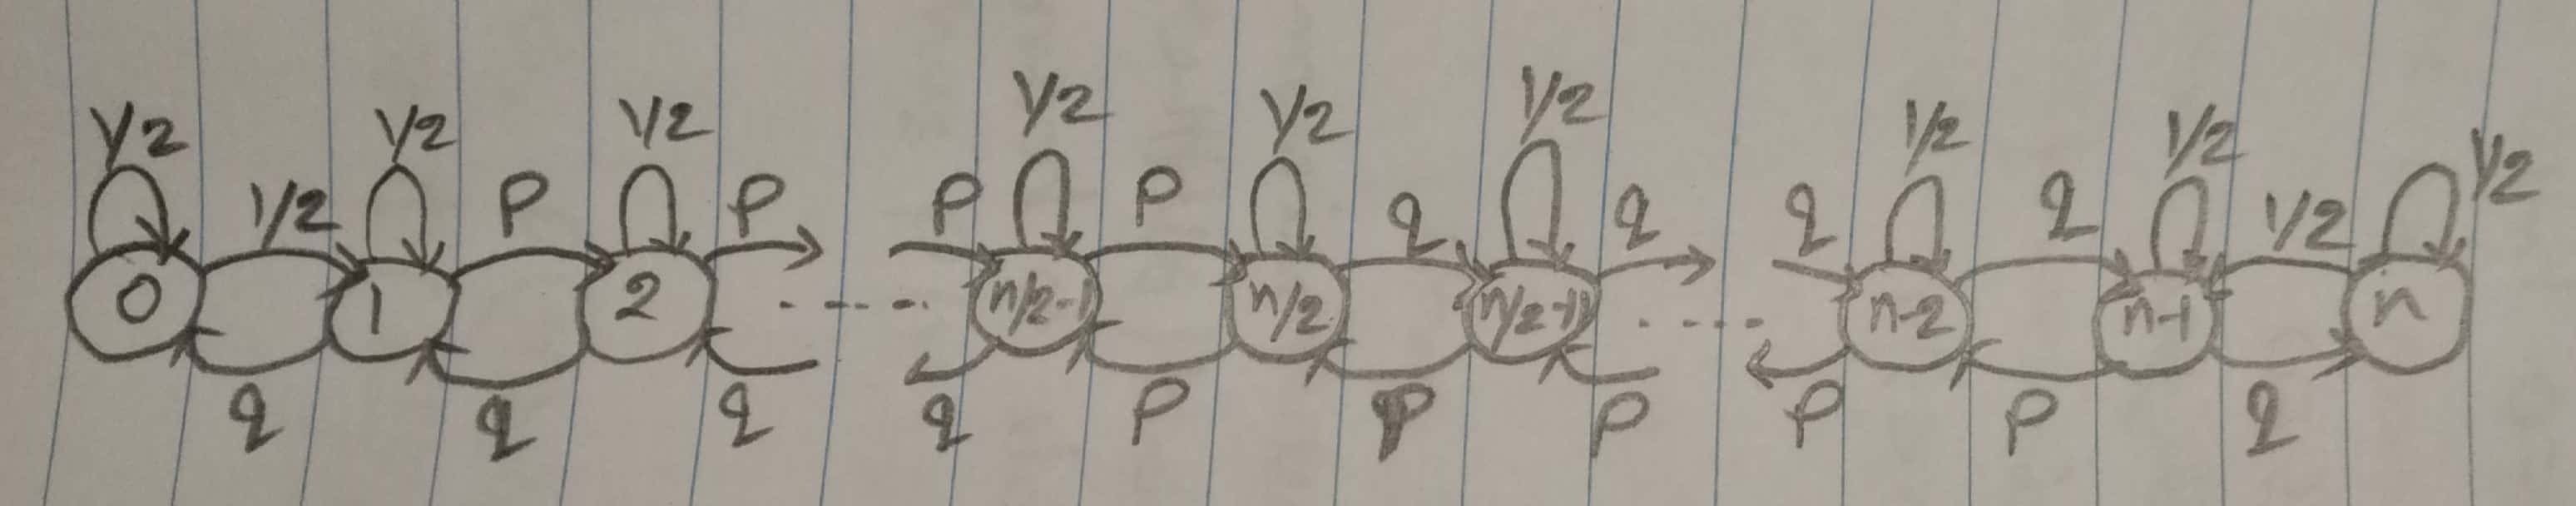 1/2 1/2 1/2 1/2 1/2 1/2 1/2 1/2 1/2
1/2 p p p p q q q q 1/2
0 1 2 ----- n/2-1 n/2 n/2-1 ----- n-2 n-1 n
q q q q p p p p p q